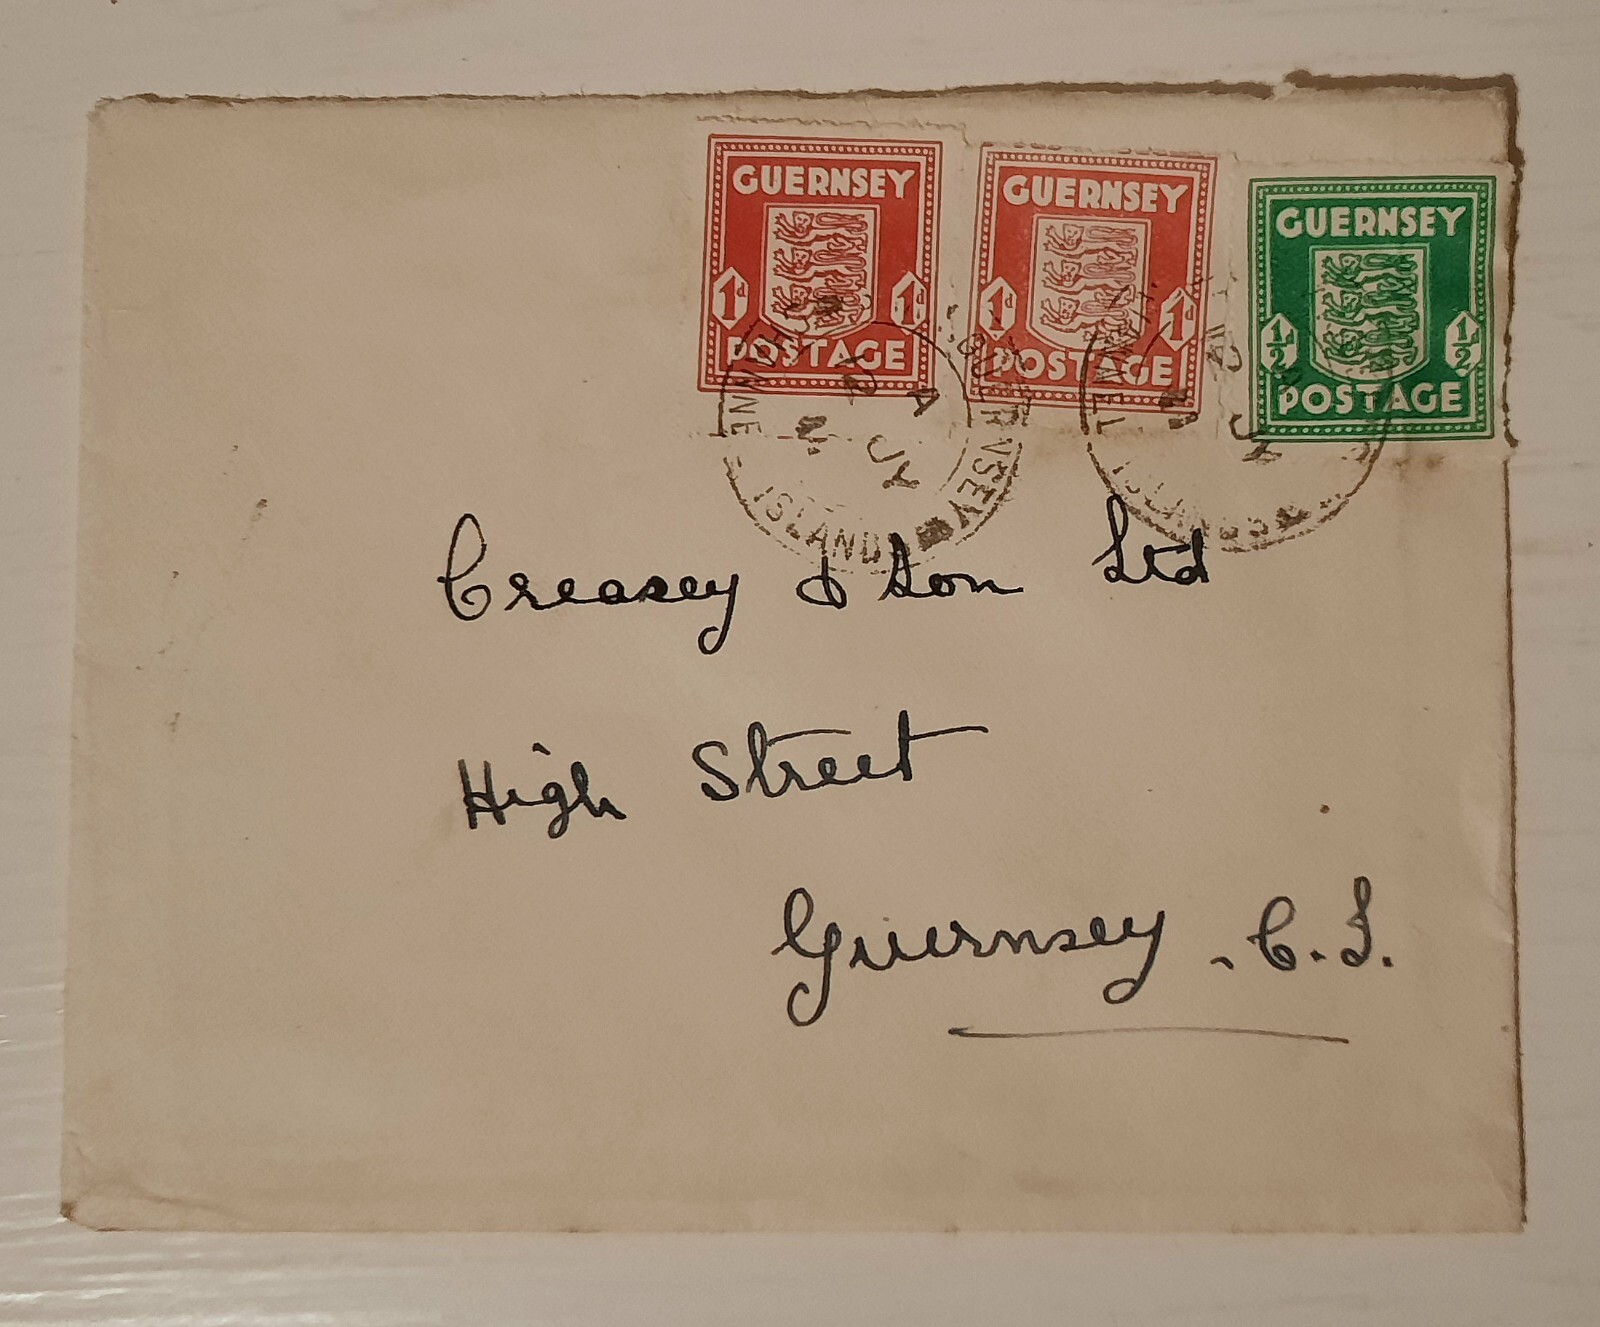 GUERNSEY
1d 1d
POSTAGE
GUERNSEY
1d 1d
POSTAGE
GUERNSEY
½ ½
POSTAGE
GUERNSEY
CHANNEL ISLANDS
A
JY
CHANNEL ISLANDS
Creasey & Son Ltd
High Street
Guernsey. C.I.